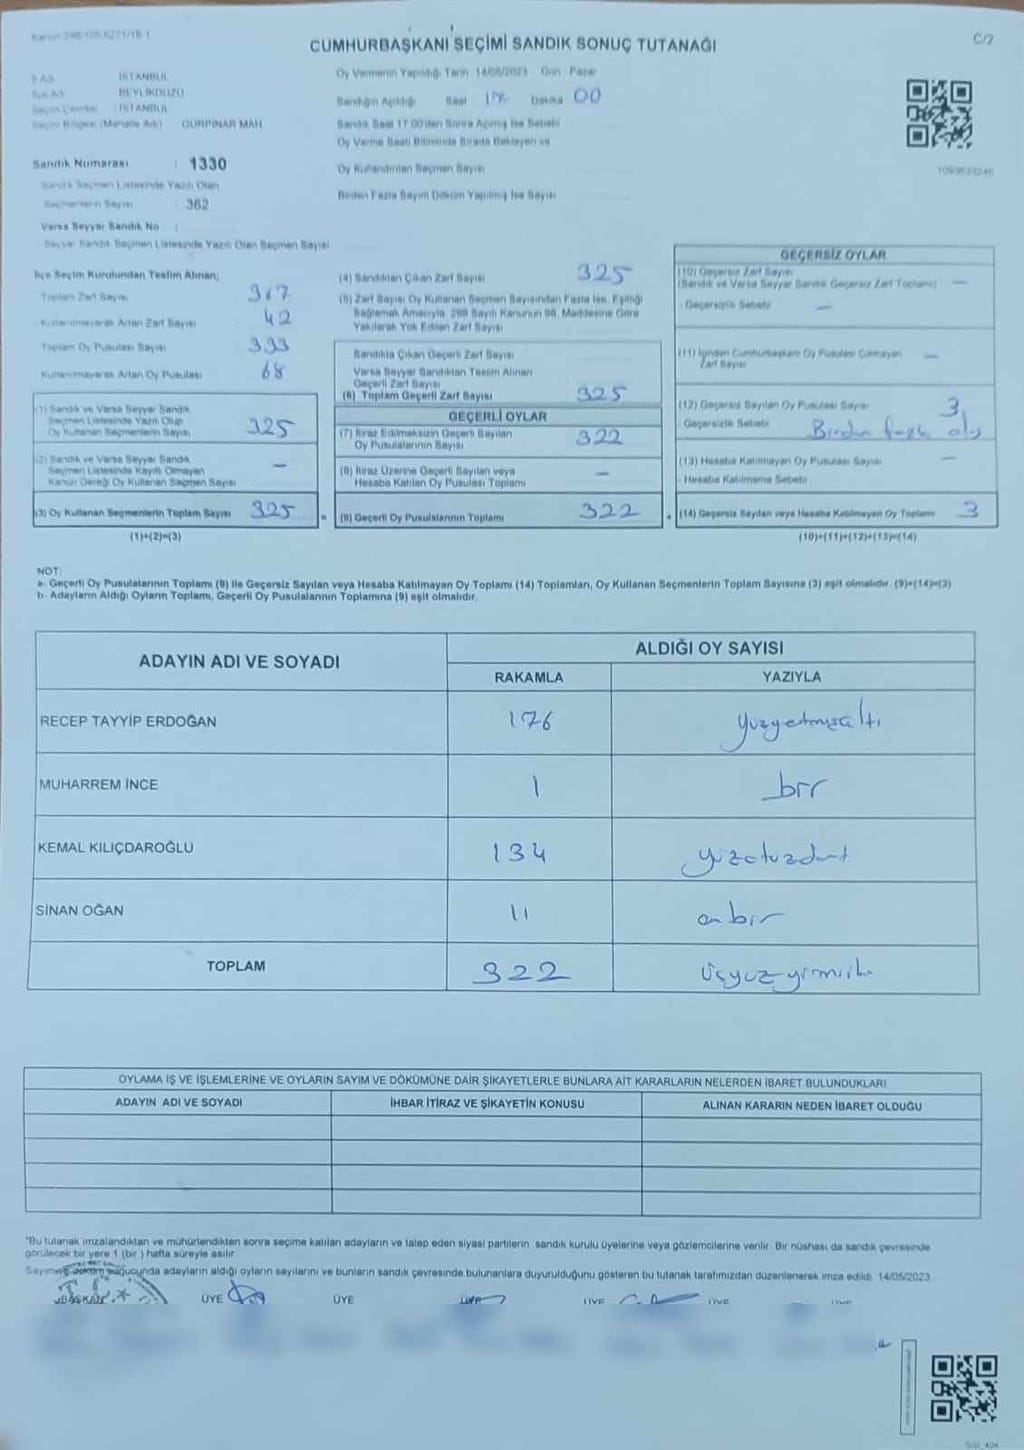 C/2
CUMHURBAŞKANI SEÇİMİ SANDIK SONUÇ TUTANAĞI
İSTANBUL
BEYLİKDÜZÜ
İSTANBUL
Seçim Bölgesi (Mahalle Adı) GÜRPINAR MAH.
Sandık Numarası : 1330
Sandık Seçmen Listesinde Yazılı Olan
Seçmenlerin Sayısı : 362
Varsa Seyyar Sandık No :
Seyyar Sandık Seçmen Listesinde Yazılı Olan Seçmen Sayısı
Oy Vermenin Yapıldığı Tarih 14/05/2023 Gün Pazar
Sandığın Açıldığı Saat 17 Dakika 00
Sandık Saat 17.00'den Sonra Açılmış İse Sebebi
Oy Verme Saati Bitiminde Sırada Bekleyen ve
Oy Kullandırılan Seçmen Sayısı
Birden Fazla Sayım Döküm Yapılmış İse Sayısı
1093633245
İlçe Seçim Kurulundan Teslim Alınan;
Toplam Zarf Sayısı 367
Kullanılmayarak Artan Zarf Sayısı 42
Toplam Oy Pusulası Sayısı 393
Kullanılmayarak Artan Oy Pusulası 68
(1) Sandık ve Varsa Seyyar Sandık
Seçmen Listesinde Yazılı Olup
Oy Kullanan Seçmenlerin Sayısı 325
(2) Sandık ve Varsa Seyyar Sandık
Seçmen Listesinde Kayıtlı Olmayan
Kanun Gereği Oy Kullanan Seçmen Sayısı –
(3) Oy Kullanan Seçmenlerin Toplam Sayısı 325
(1)+(2)=(3)
(4) Sandıktan Çıkan Zarf Sayısı 325
(5) Zarf Sayısı Oy Kullanan Seçmen Sayısından Fazla İse, Eşitliği
Sağlamak Amacıyla, 298 Sayılı Kanunun 98. Maddesine Göre
Yakılarak Yok Edilen Zarf Sayısı
Sandıkta Çıkan Geçerli Zarf Sayısı
Varsa Seyyar Sandıktan Teslim Alınan
Geçerli Zarf Sayısı
(6) Toplam Geçerli Zarf Sayısı 325
GEÇERLİ OYLAR
(7) İtiraz Edilmeksizin Geçerli Sayılan
Oy Pusulalarının Sayısı 322
(8) İtiraz Üzerine Geçerli Sayılan veya
Hesaba Katılan Oy Pusulası Toplamı –
= (9) Geçerli Oy Pusulalarının Toplamı 322
GEÇERSİZ OYLAR
(10) Geçersiz Zarf Sayısı
(Sandık ve Varsa Seyyar Sandık Geçersiz Zarf Toplamı) –
- Geçersizlik Sebebi –
(11) İçinden Cumhurbaşkanı Oy Pusulası Çıkmayan
Zarf Sayısı –
(12) Geçersiz Sayılan Oy Pusulası Sayısı 3
- Geçersizlik Sebebi Birden fazla oy
(13) Hesaba Katılmayan Oy Pusulası Sayısı –
- Hesaba Katılmama Sebebi
+ (14) Geçersiz Sayılan veya Hesaba Katılmayan Oy Toplamı 3
(10)+(11)+(12)+(13)=(14)
NOT:
a- Geçerli Oy Pusulalarının Toplamı (9) ile Geçersiz Sayılan veya Hesaba Katılmayan Oy Toplamı (14) Toplamları, Oy Kullanan Seçmenlerin Toplam Sayısına (3) eşit olmalıdır. (9)+(14)=(3)
b- Adayların Aldığı Oyların Toplamı, Geçerli Oy Pusulalarının Toplamına (9) eşit olmalıdır.
ADAYIN ADI VE SOYADI
ALDIĞI OY SAYISI
RAKAMLA YAZIYLA
RECEP TAYYİP ERDOĞAN 176 yüzyetmişaltı
MUHARREM İNCE 1 bir
KEMAL KILIÇDAROĞLU 134 yüzotuzdört
SİNAN OĞAN 11 onbir
TOPLAM 322 üçyüzyirmiiki
OYLAMA İŞ VE İŞLEMLERİNE VE OYLARIN SAYIM VE DÖKÜMÜNE DAİR ŞİKAYETLERLE BUNLARA AİT KARARLARIN NELERDEN İBARET BULUNDUKLARI
ADAYIN ADI VE SOYADI İHBAR İTİRAZ VE ŞİKAYETİN KONUSU ALINAN KARARIN NEDEN İBARET OLDUĞU
*Bu tutanak imzalandıktan ve mühürlendikten sonra seçime katılan adayların ve talep eden siyasi partilerin sandık kurulu üyelerine veya gözlemcilerine verilir. Bir nüshası da sandık çevresinde
görülecek bir yere 1 (bir ) hafta süreyle asılır.
Sayım ve döküm sonucunda adayların aldığı oyların sayılarını ve bunların sandık çevresinde bulunanlara duyurulduğunu gösteren bu tutanak tarafımızdan düzenlenerek imza edildi. 14/05/2023
BAŞKAN ÜYE ÜYE ÜYE ÜYE ÜYE ÜYE